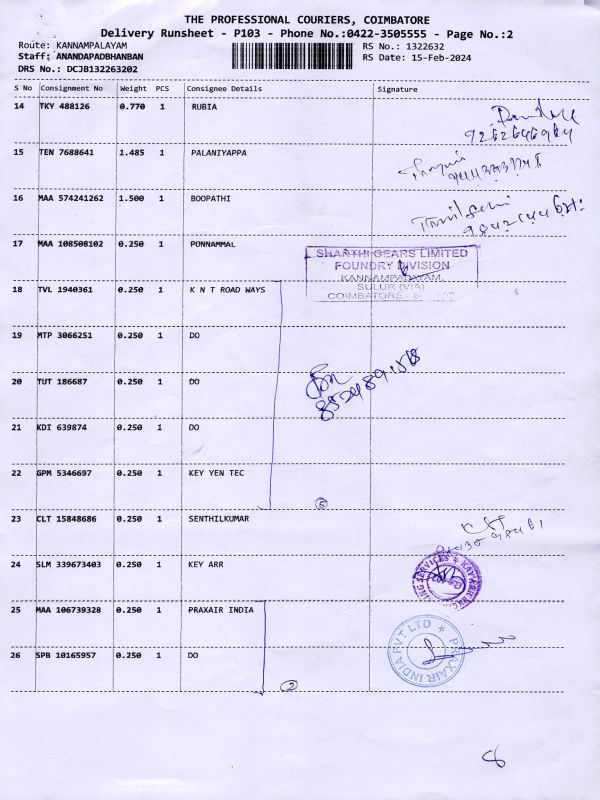 THE PROFESSIONAL COURIERS, COIMBATORE
Delivery Runsheet - P103 - Phone No.:0422-3505555 - Page No.:2
Route: KANNAMPALAYAM RS No.: 1322632
Staff: ANANDAPADHBANBAN RS Date: 15-Feb-2024
DRS No.: DCJB132263202
S No Consignment No Weight PCS Consignee Details Signature
14 TKY 488126 0.770 1 RUBIA
15 TEN 7688641 1.485 1 PALANIYAPPA
16 MAA 574241262 1.500 1 BOOPATHI
17 MAA 108508102 0.250 1 PONNAMMAL
SHANTHI GEARS LIMITED
FOUNDRY DIVISION
KANNAMPALAYAM,
SULUR (VIA)
COIMBATORE -
18 TVL 1940361 0.250 1 K N T ROAD WAYS
19 MTP 3066251 0.250 1 DO
20 TUT 186687 0.250 1 DO
21 KDI 639874 0.250 1 DO
22 GPM 5346697 0.250 1 KEY YEN TEC
5
23 CLT 15848686 0.250 1 SENTHILKUMAR
24 SLM 339673403 0.250 1 KEY ARR
25 MAA 106739328 0.250 1 PRAXAIR INDIA
PRAXAIR INDIA PVT LTD
26 SPB 10165957 0.250 1 DO
2
8